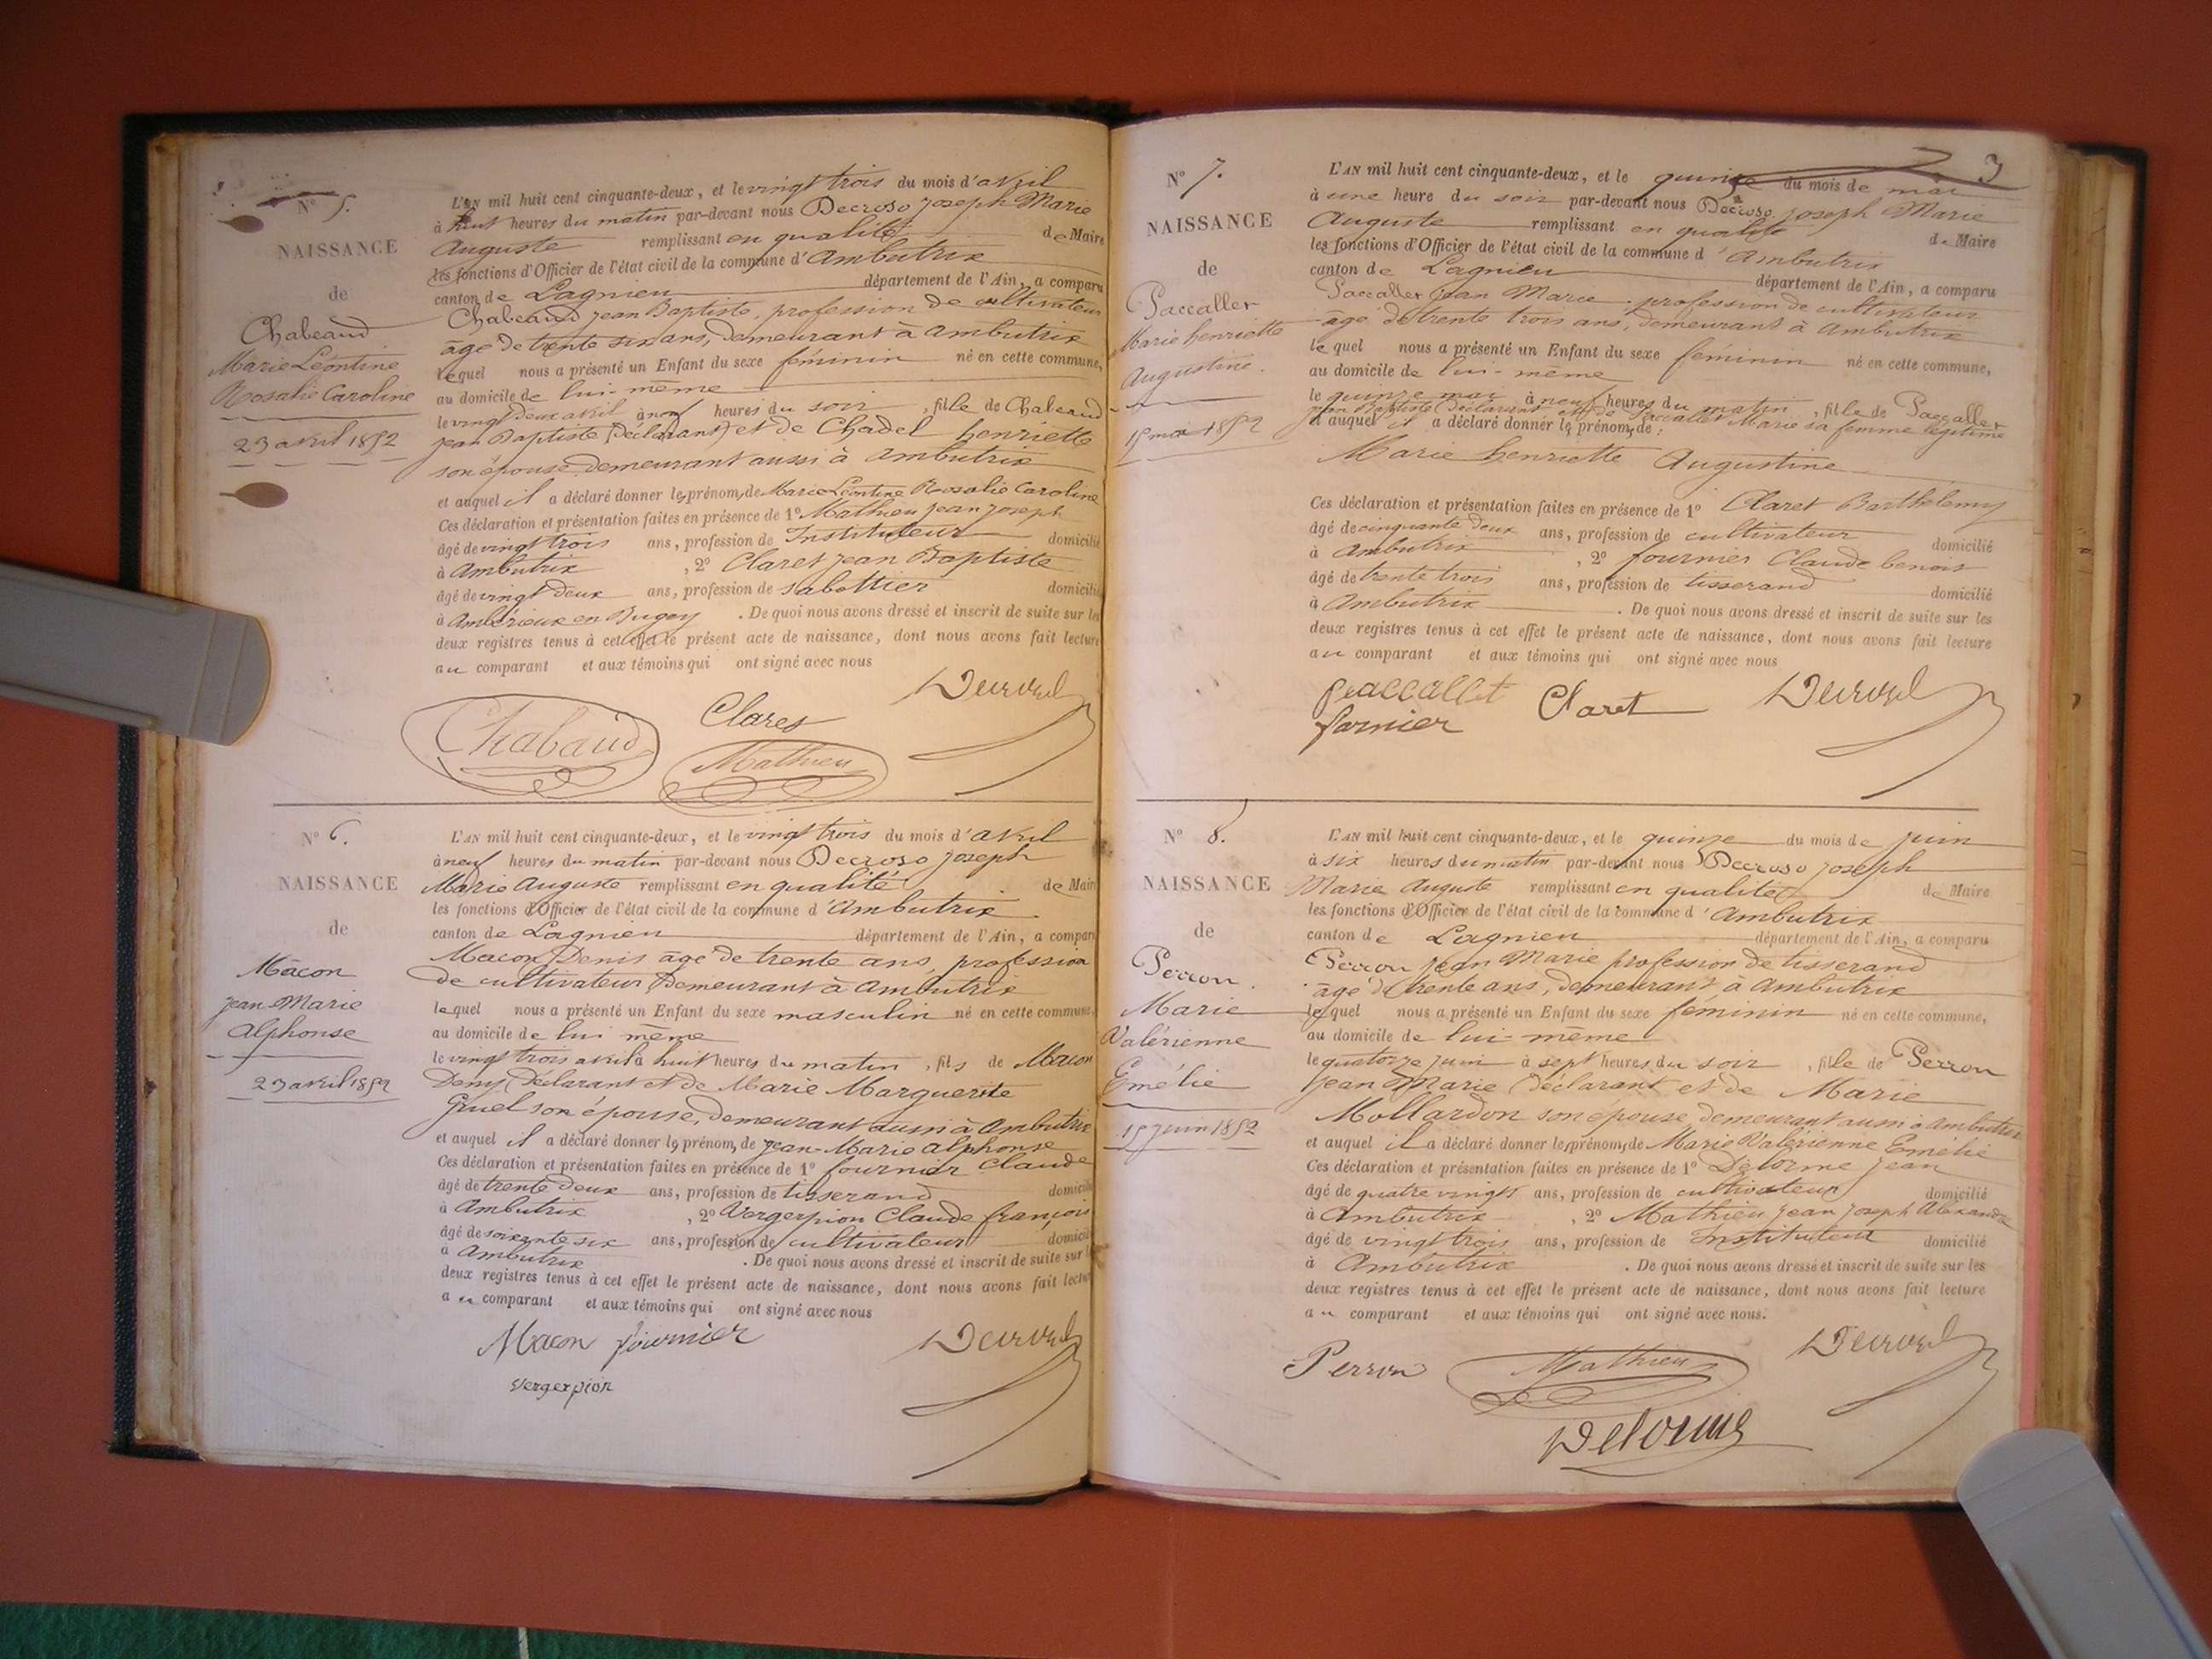 N° 5.
NAISSANCE
de
Chabeaud
Marie Léontine
Rosalie Caroline
23 avril 1852
L'AN mil huit cent cinquante-deux, et le vingt trois du mois d'avril
à huit heures du matin par-devant nous Decroso Joseph Marie
Auguste remplissant en qualité de Maire
les fonctions d'Officier de l'état civil de la commune d'Ambutrix
canton de Lagnieu département de l'Ain, a comparu
Chabeaud jean Baptiste, profession de cultivateur
âgé de trente six ans, demeurant à ambutrix
lequel nous a présenté un Enfant du sexe féminin né en cette commune,
au domicile de lui-même
le vingt deux avril à neuf heures du soir, fille de Chabeaud
jean Baptiste (déclarant) et de Chadel henriette
son épouse demeurant aussi à ambutrix
et auquel il a déclaré donner les prénoms de Marie Léontine Rosalie Caroline
Ces déclaration et présentation faites en présence de 1° Mathieu jean joseph
âgé de vingt trois ans, profession de Instituteur domicilié
à Ambutrix, 2° Claret jean Baptiste
âgé de vingt deux ans, profession de sabottier domicilié
à Ambérieux en Bugey. De quoi nous avons dressé et inscrit de suite sur les
deux registres tenus à cet effet le présent acte de naissance, dont nous avons fait lecture
au comparant et aux témoins qui ont signé avec nous
Chabaud Claret
Mathieu
N° 6.
NAISSANCE
de
Mâcon
jean-Marie
alphonse
23 avril 1852
L'AN mil huit cent cinquante-deux, et le vingt trois du mois d'avril
à neuf heures du matin par-devant nous Decroso joseph
Marie Auguste remplissant en qualité de Maire
les fonctions d'Officier de l'état civil de la commune d'Ambutrix
canton de Lagnieu département de l'Ain, a comparu
Macon Denis âgé de trente ans, profession
de cultivateur, demeurant à ambutrix
lequel nous a présenté un Enfant du sexe masculin né en cette commune,
au domicile de lui même
le vingt trois avril à huit heures du matin, fils de Macon
Deny, déclarant et de Marie Marguerite
Gruel son épouse, demeurant aussi à Ambutrix
et auquel il a déclaré donner les prénoms de jean-Marie alphonse
Ces déclaration et présentation faites en présence de 1° fournier Claude
âgé de trente deux ans, profession de tisserand domicilié
à Ambutrix, 2° Vergerpion Claude françois
âgé de soixante six ans, profession de cultivateur domicilié
à Ambutrix. De quoi nous avons dressé et inscrit de suite sur les
deux registres tenus à cet effet le présent acte de naissance, dont nous avons fait lecture
au comparant et aux témoins qui ont signé avec nous
Macon fournier
Vergerpion
3
N° 7.
NAISSANCE
de
Paccallet
Marie henriette
Augustine.
15 mai 1852
L'AN mil huit cent cinquante-deux, et le quinze du mois de mai
à une heure du soir par-devant nous Decroso joseph Marie
Auguste remplissant en qualité de Maire
les fonctions d'Officier de l'état civil de la commune d'Ambutrix
canton de Lagnieu département de l'Ain, a comparu
Paccallet jean Marie profession de cultivateur
âgé de trente trois ans, demeurant à Ambutrix
lequel nous a présenté un Enfant du sexe féminin né en cette commune,
au domicile de lui-même
le quinze mai à neuf heures du matin, fille de Paccallet
jean Baptiste (déclarant) et de Paccallet Marie sa femme légitime
et auquel il a déclaré donner les prénoms de :
Marie henriette Augustine
Ces déclaration et présentation faites en présence de 1° Claret Barthélemy
âgé de cinquante deux ans, profession de cultivateur domicilié
à Ambutrix, 2° fournier Claude benoit
âgé de trente trois ans, profession de tisserand domicilié
à Ambutrix. De quoi nous avons dressé et inscrit de suite sur les
deux registres tenus à cet effet le présent acte de naissance, dont nous avons fait lecture
au comparant et aux témoins qui ont signé avec nous
Claret
fornier
N° 8.
NAISSANCE
de
Perron.
Marie
Valérienne
Emélie
15 juin 1852
L'AN mil huit cent cinquante-deux, et le quinze du mois de juin
à six heures du matin par-devant nous Decroso joseph
Marie Auguste remplissant en qualité de Maire
les fonctions d'Officier de l'état civil de la commune d'Ambutrix
canton de Lagnieu département de l'Ain, a comparu
Perron jean Marie profession de tisserand
âgé de trente ans, demeurant à Ambutrix
lequel nous a présenté un Enfant du sexe féminin né en cette commune,
au domicile de lui-même
le quatorze juin à sept heures du soir, fille de Perron
jean Marie (déclarant et de Marie
Mollardon son épouse, demeurant aussi à ambutrix
et auquel il a déclaré donner les prénoms de Marie Valérienne Emélie
Ces déclaration et présentation faites en présence de 1° Delorme jean
âgé de quatre vingts ans, profession de cultivateur domicilié
à Ambutrix, 2° Mathieu jean joseph Alexandre
âgé de vingt trois ans, profession de Instituteur domicilié
à Ambutrix. De quoi nous avons dressé et inscrit de suite sur les
deux registres tenus à cet effet le présent acte de naissance, dont nous avons fait lecture
au comparant et aux témoins qui ont signé avec nous.
Perron Mathieu
Delorme